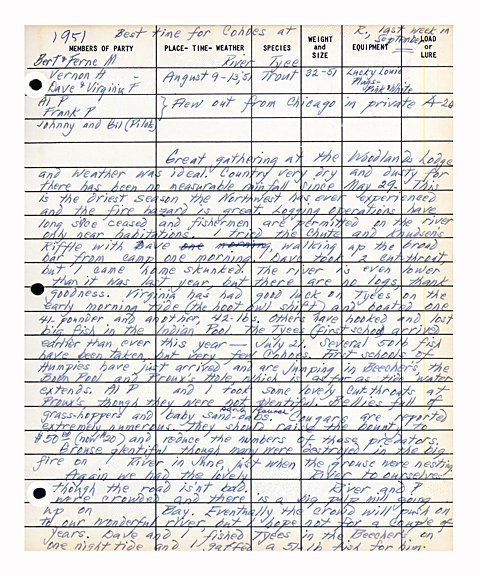 1951 Best time for Cohoes at R, last week in September
MEMBERS OF PARTY PLACE- TIME- WEATHER SPECIES WEIGHT and SIZE EQUIPMENT LOAD or LURE
Bert & Ferne M River Tyee
Vernon H August 9-13, 51 Trout 32-51 Lucky Louie
Dave & Virginia F Plugs-
Pink & White
Al P } Flew out from Chicago in private A-26
Frank P
Johnny and Bil (Pilots)
Great gathering at the Woodlands Lodge
and weather was ideal. Country very dry and dusty for
there has been no measurable rainfall since May 29. This
is the driest season the Northwest has ever experienced
and the fire hazard is great. Logging operations have
long since ceased and fishermen are permitted on the river
only near habitations. I tried the Chute and Knudsen's
Riffle with Dave one morning, walking up the broad
bar from camp one morning. Dave took 2 cutthroat
but I came home skunked. The river is even lower
than it was last year, but there are no logs, thank
goodness. Virginia has had good luck on Tyees on the
early morning tide the boot owl shift, and boated one
41 pounder and another 42 lbs. Others have hooked and lost
big fish in the Indian Pool. The Tyees (first school) arrived
earlier than ever this year — July 22. Several 50 lb fish
have been taken, but very few Cohoes. First schools of
Humpies have just arrived and are jumping in Beechers, the
Boom Pool and Proux's Hole which is as far as tide water
extends. Al P and I took some lovely Cutthroats at
Proux's though they were not plentiful. Bellies full of
grass-hoppers and baby sand-dabs. Cougars are reported
extremely numerous. They should raise the bounty to
$50.00 (now $20) and reduce the numbers of these predators.
Grouse plentiful though many were destroyed in the big
fire on River in June, just when the grouse were nesting
Again we had the lovely River to ourselves
though the road isn't bad. River and P
were crowded and there is a big pulp mill going
up on Bay. Eventually the crowd will push on
to our wonderful river but I hope not for a couple of
years. Dave and I fished Tyees in the Beechers on
one night tide and I gaffed a 51 lb fish for him.